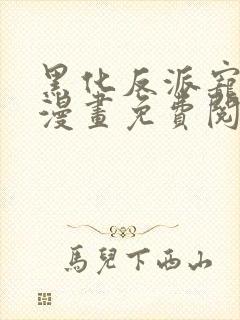 黑化反派寵
漫畫免費閱
馬兒下西山